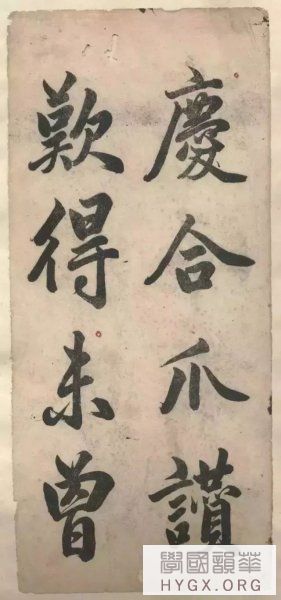 慶合爪讃
歎得未曾
學國韻華
HYGX.ORG